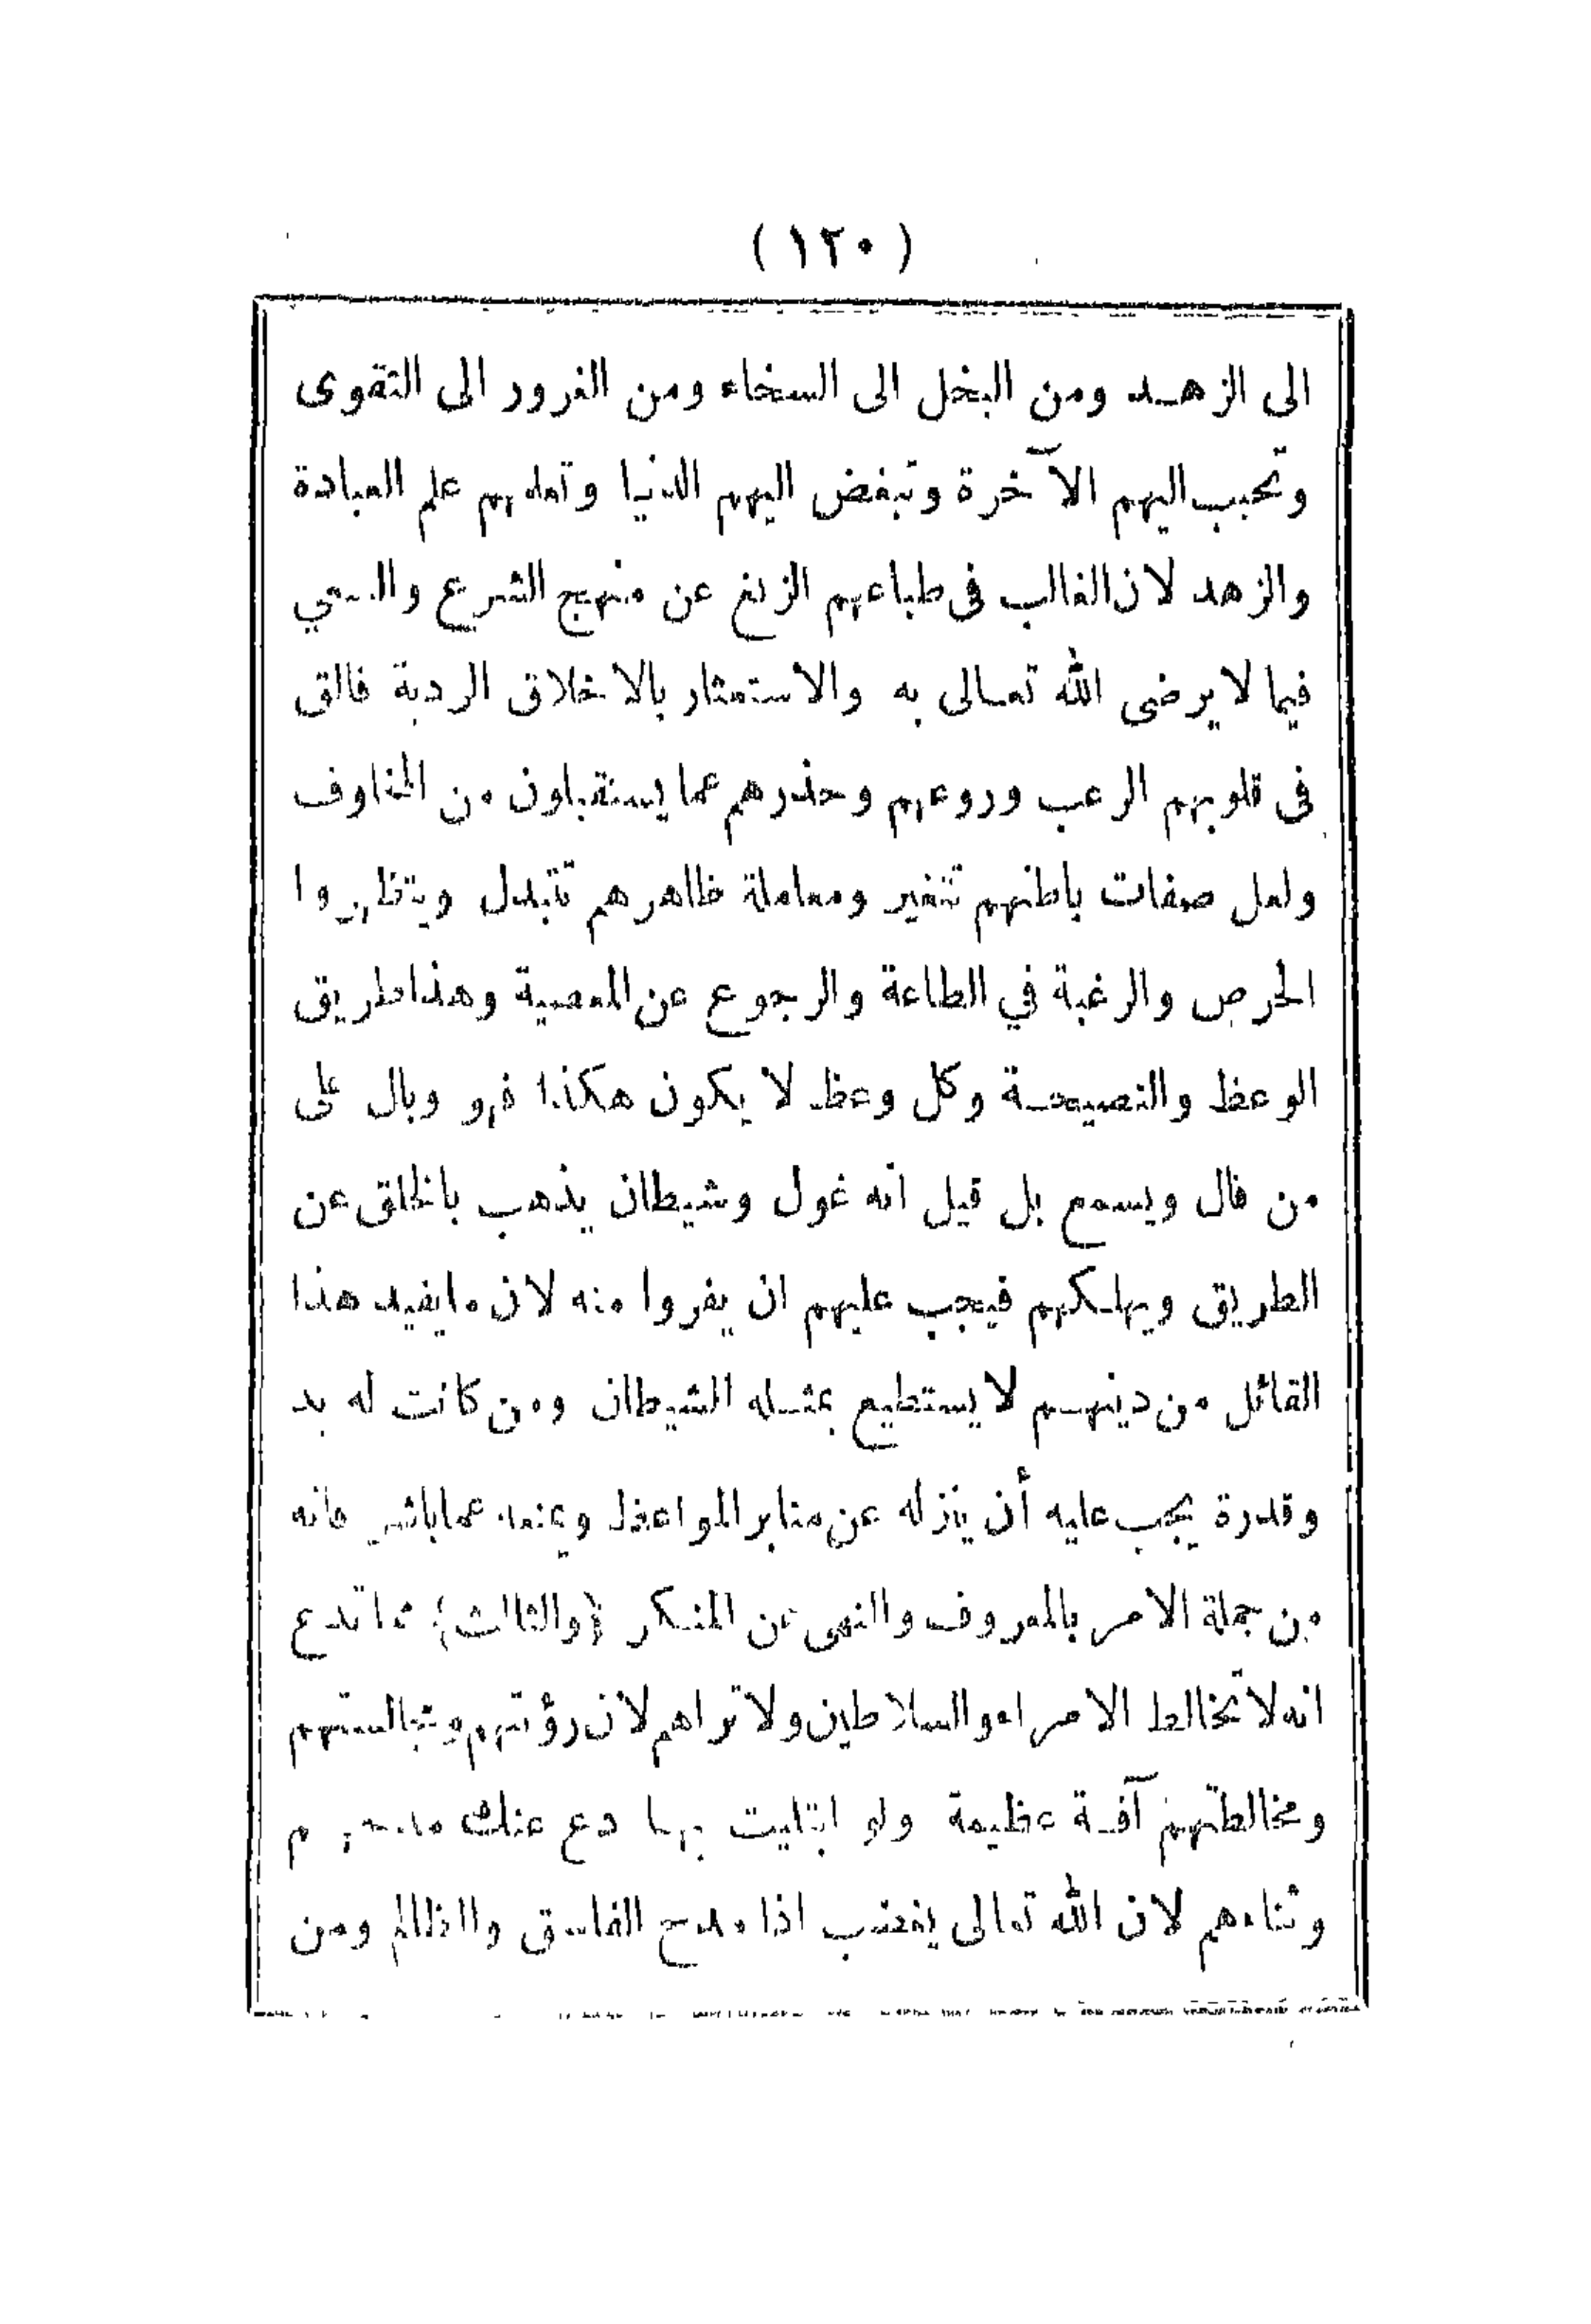 (١٢٠)
الى الزهد ومن البخل الى السخاء ومن الغرور الى التقوى
وتحبب اليهم الآخرة وتبغض اليهم الدنيا وتعلمهم علم العبادة
والزهد لان الغالب في طباعهم الزيغ عن منهج الشرع والسعي
فيما لا يرضى الله تعالى به والاستعثار بالاخلاق الردية فالق
فى قلوبهم الرعب وروعهم وحذرهم عما يستقبلون من المخاوف
ولعل صفات باطنهم تتغير ومعاملة ظاهرهم تتبدل ويتظهروا
الحرص والرغبة في الطاعة والرجوع عن المعصية وهذا طريق
الوعظ والنصيحة وكل وعظ لا يكون هكذا فهو وبال على
من قال ويسمع بل قيل انه غول وشيطان يذهب بالخلق عن
الطريق ويهلكهم فيجب عليهم ان يفروا منه لان ما يفيد هذا
القائل من دينهم لا يستطيع بمثله الشيطان ومن كانت له يد
وقدرة يجب عليه أن ينزله عن منابر المواعظ ويمنعه عما باشر فانه
من جملة الامر بالمعروف والنهى عن المنكر {والثالث} مما تدع
انه لا تخالط الامراء والسلاطين ولا تراهم لان رؤيتهم ومجالستهم
ومخالطتهم آفة عظيمة ولو ابتليت بها دع عنك مدحهم
وثناءهم لان الله تعالى يغضب اذا مدح الفاسق والظالم ومن